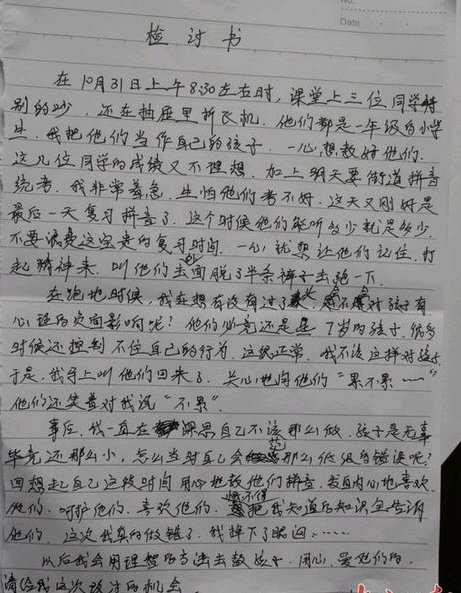 No.
Date
检讨书
在10月31日上午8:30左右时，课堂上三位同学特
别的吵，还在抽屉里折飞机，他们都是一年级的小学
生，我把他们当作自己的孩子，一心想教好他们，
这几位同学的成绩又不理想，加上明天要街道拼音
统考，我非常着急，生怕他们考不好，这天又刚好是
最后一天复习拼音了，这个时候他们能听多少就是多少
不要浪费这宝贵的复习时间，一心就想让他们记住，打
起精神来，叫他们去面脱了半条裤子去跑一下。
在跑地时候，我在想有没有过了头，会不会对孩子有
心理的负面影响呢？他们必竟还是 7岁的孩子，很多
时候还控制不住自己的行为，这很正常，我不该这样对孩子
于是，我马上叫他们回来了，关心地问他们“累不累……”
他们还笑着对我说“不累”。
事后，我一直在 自己不该那么做，孩子是无辜
毕竟还那么小，怎么当时自己会犯那么低级的错误呢？
回想起自己这段时间用心地教他们拼音，发自内心地喜欢
他们，呵护他们，喜欢他们，恨不得把我知道的知识全告诉
他们，这次我真的做错了，我掉下了眼泪……
以后我会用理智的方法去教孩子，用心，爱他们的，
请给我这次改过的机会